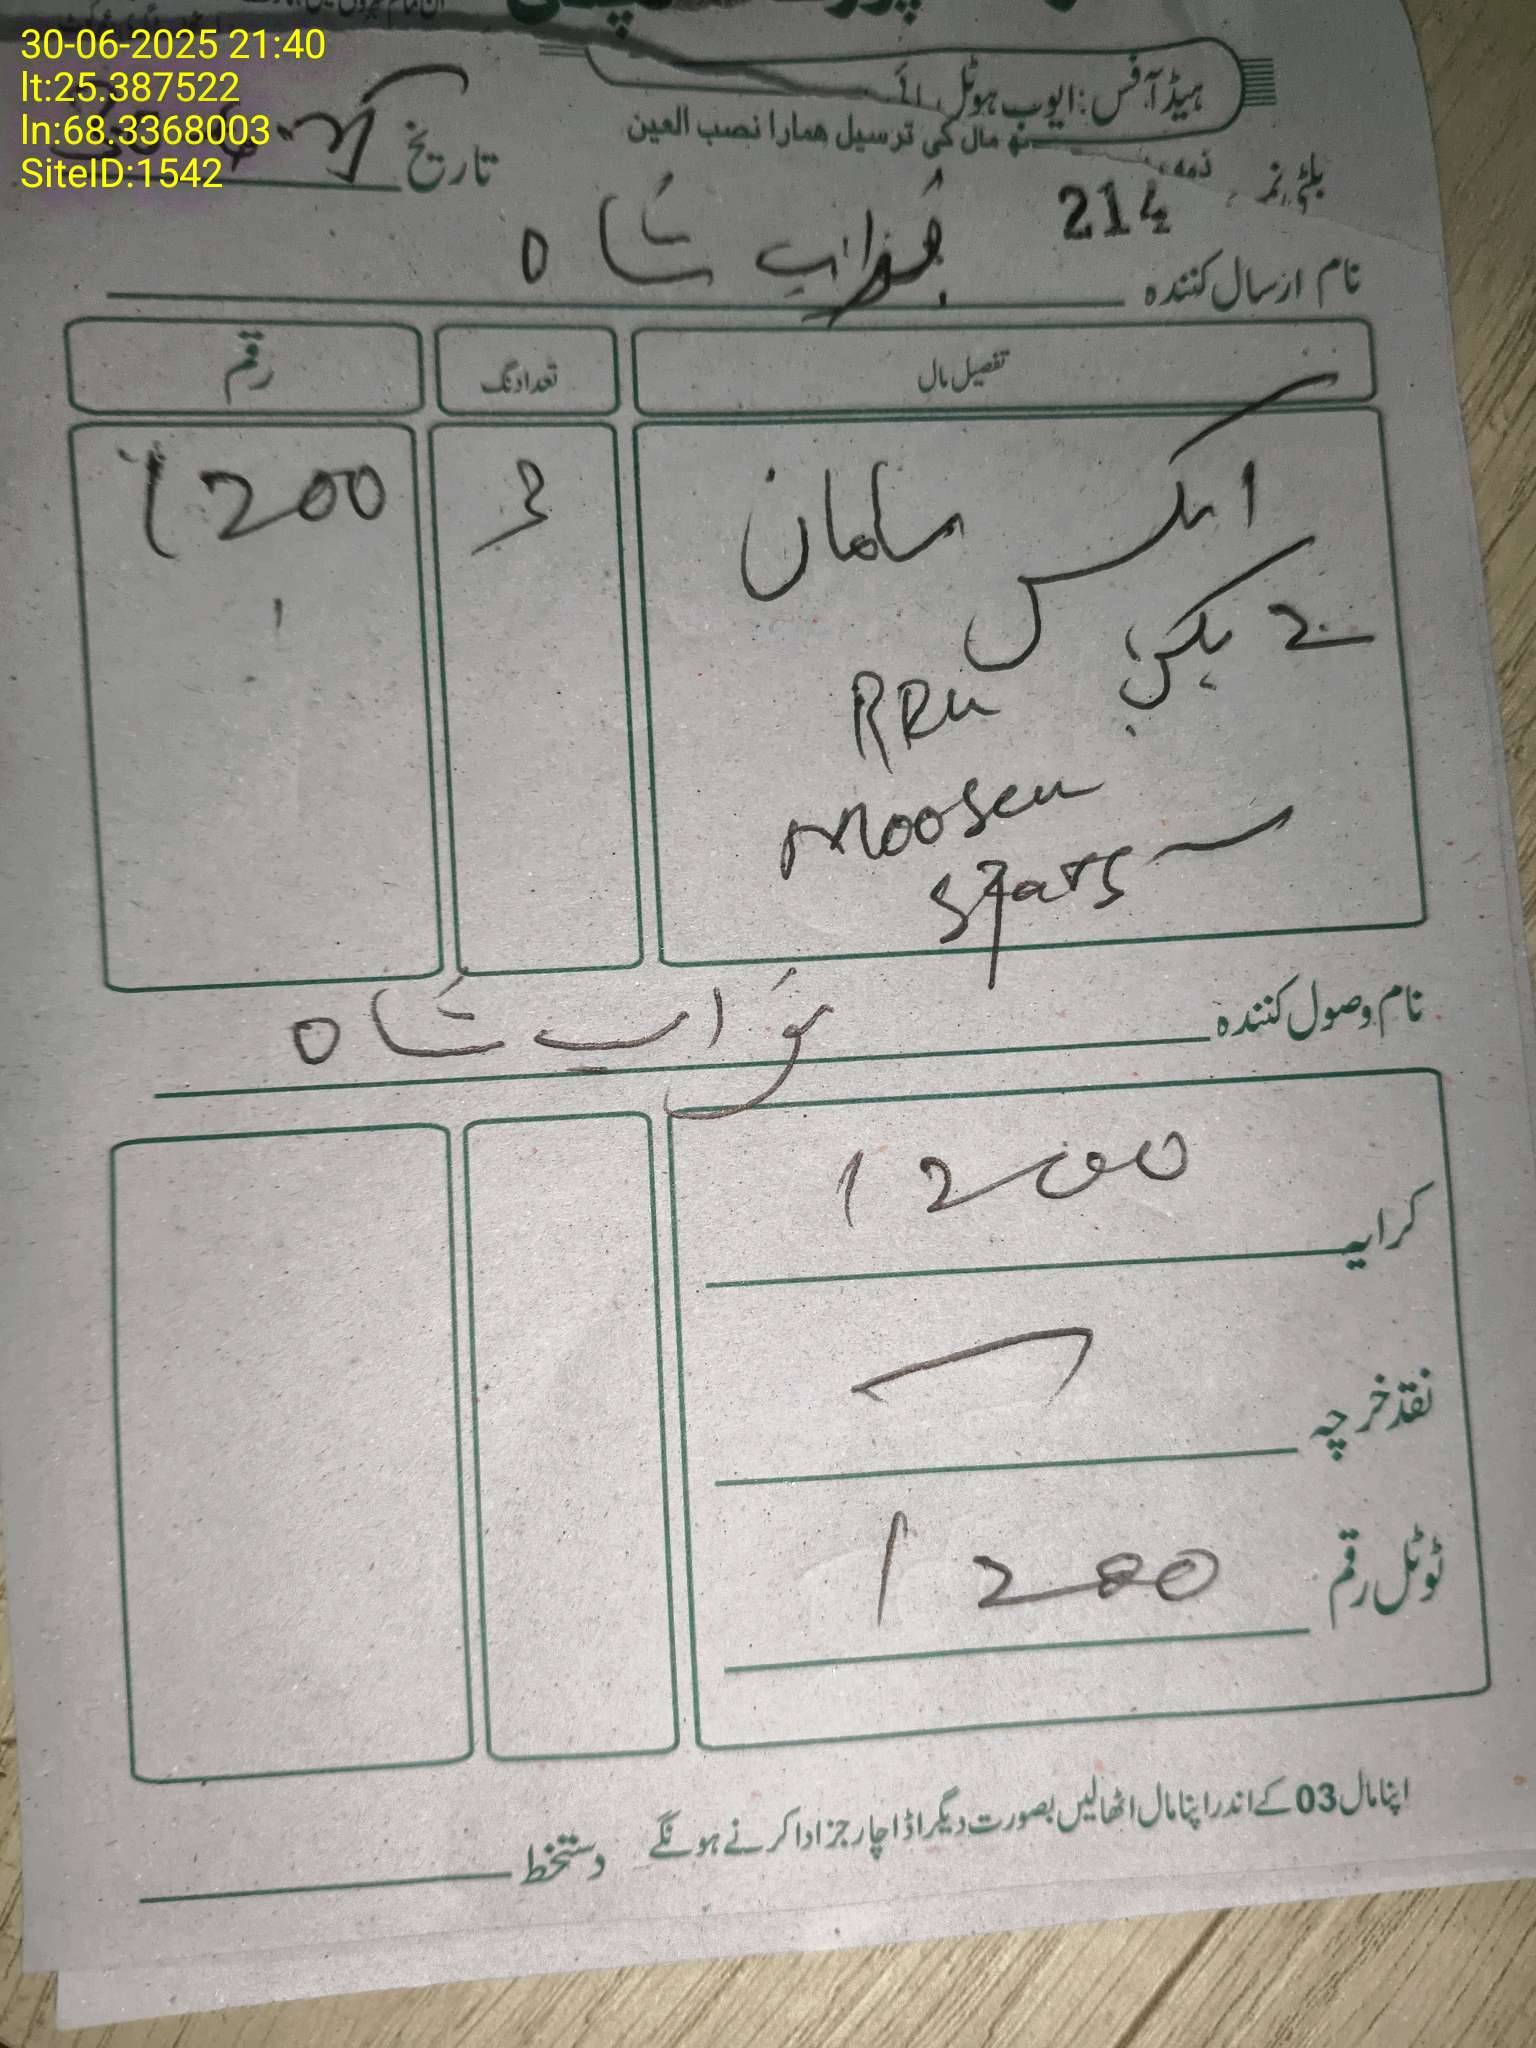 30-06-2025 21:40
lt:25.387522
ln:68.3368003
SiteID:1542
ہیڈ آفس: ایوب ہوٹل
مال کی ترسیل ہمارا نصب العین
تاریخ
بلٹی نمبر 214
نام ارسال کنندہ نواب شاہ
تفصیل مال تعداد نگ رقم
سامان 3 1200
2
RRu
spars
نام وصول کنندہ نواب شاہ
1200
کرایہ
نقد خرچہ
1200
ٹوٹل رقم
اپنا مال 03 کے اندر اپنا مال اٹھالیں بصورت دیگر اڈا چارجز ادا کرنے ہونگے
دستخط